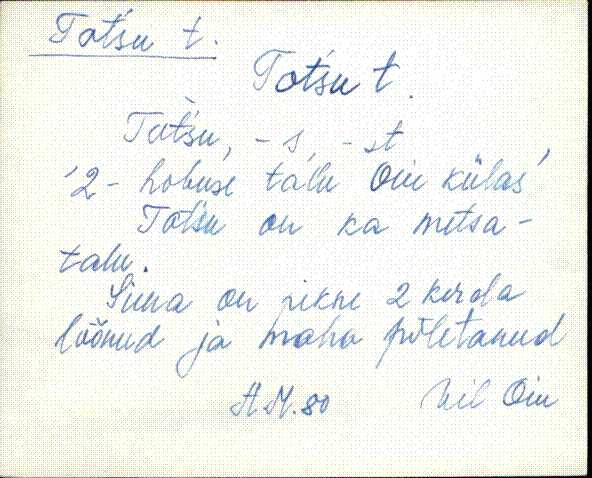 Totsu t.
Totsu t.
Totsu, -s, -st
'2-hobuse talu Oiu külas'
Totsu on ka metsa-
talu.
Sinna on pikne 2 kerda
löönud ja maha põletanud
A.M. 80 Vil Oiu